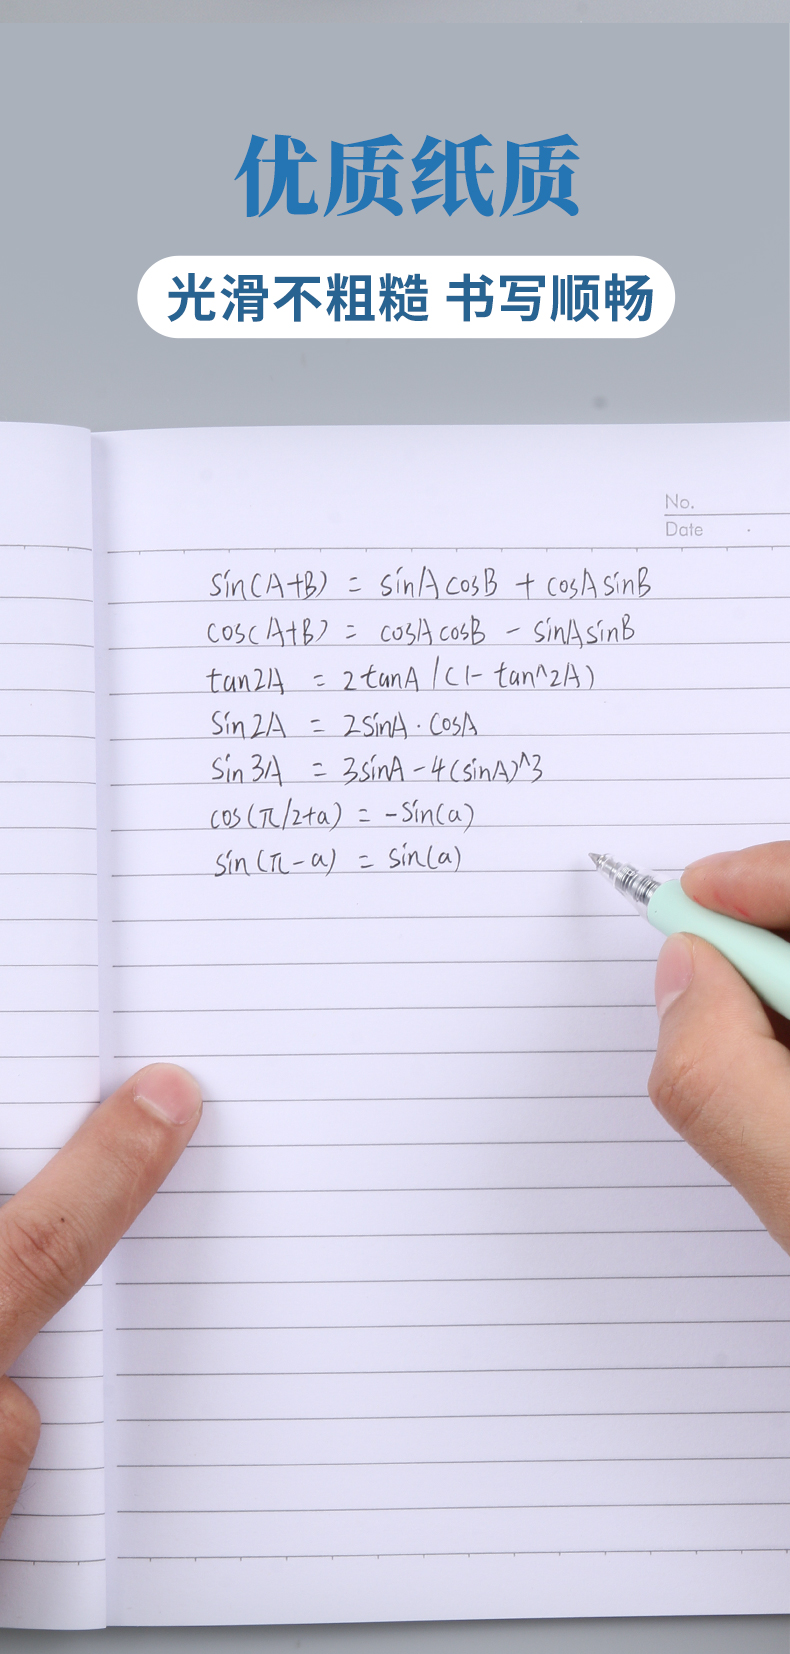 优质纸质
光滑不粗糙 书写顺畅
No.
Date
sin(A+B) = sinAcosB + cosAsinB
cos(A+B) = cosAcosB - sinAsinB
tan2A = 2tanA/(1-tan^2A)
Sin2A = 2SinA·CosA
Sin3A = 3sinA-4(sinA)^3
cos(π/2+a) = -Sin(a)
sin(π-a) = sin(a)